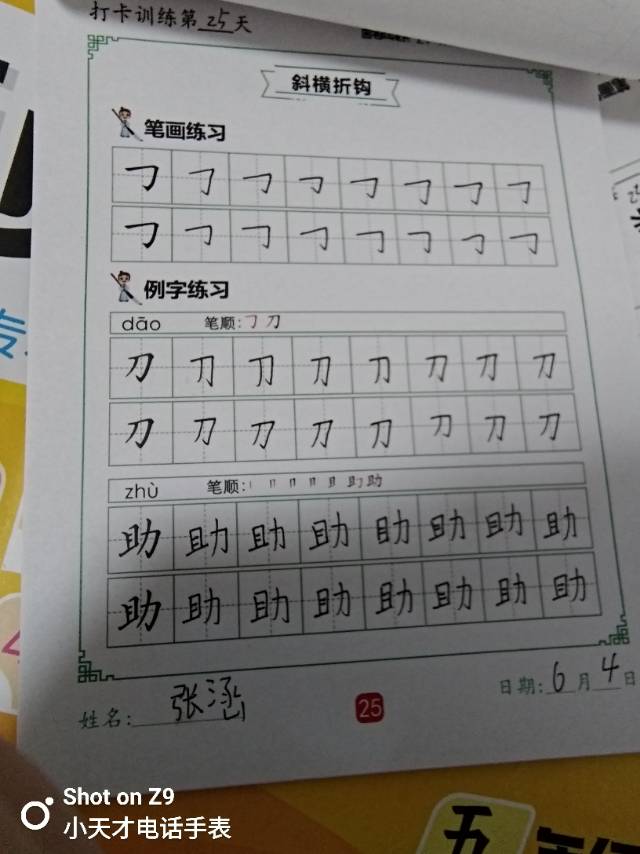 打卡训练第25天
斜横折钩
笔画练习
㇆ ㇆ ㇆ ㇆ ㇆ ㇆ ㇆ ㇆
㇆ ㇆ ㇆ ㇆ ㇆ ㇆ ㇆ ㇆
例字练习
dāo 笔顺: ㇆ 刀
刀 刀 刀 刀 刀 刀 刀 刀
刀 刀 刀 刀 刀 刀 刀 刀
zhù 笔顺:
助 助 助 助 助 助 助 助
助 助 助 助 助 助 助 助
姓名: 张涵
25
日期: 6月4日
Shot on Z9
小天才电话手表
五年